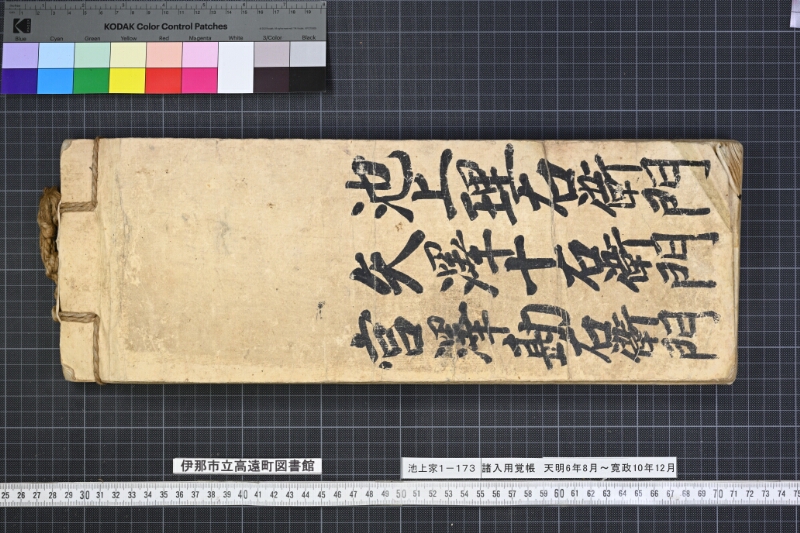 KODAK Color Control Patches
Blue Cyan Green Yellow Red Magenta White 3/Color Black
池上理右衛門
矢澤十右衛門
宮澤勘右衛門
伊那市立高遠町図書館
池上家1－173 諸入用覚帳 天明6年8月～寛政10年12月
25 26 27 28 29 30 31 32 33 34 35 36 37 38 39 40 41 42 43 44 45 46 47 48 49 50 51 52 53 54 55 56 57 58 59 60 61 62 63 64 65 66 67 68 69 70 71 72 73 74 75